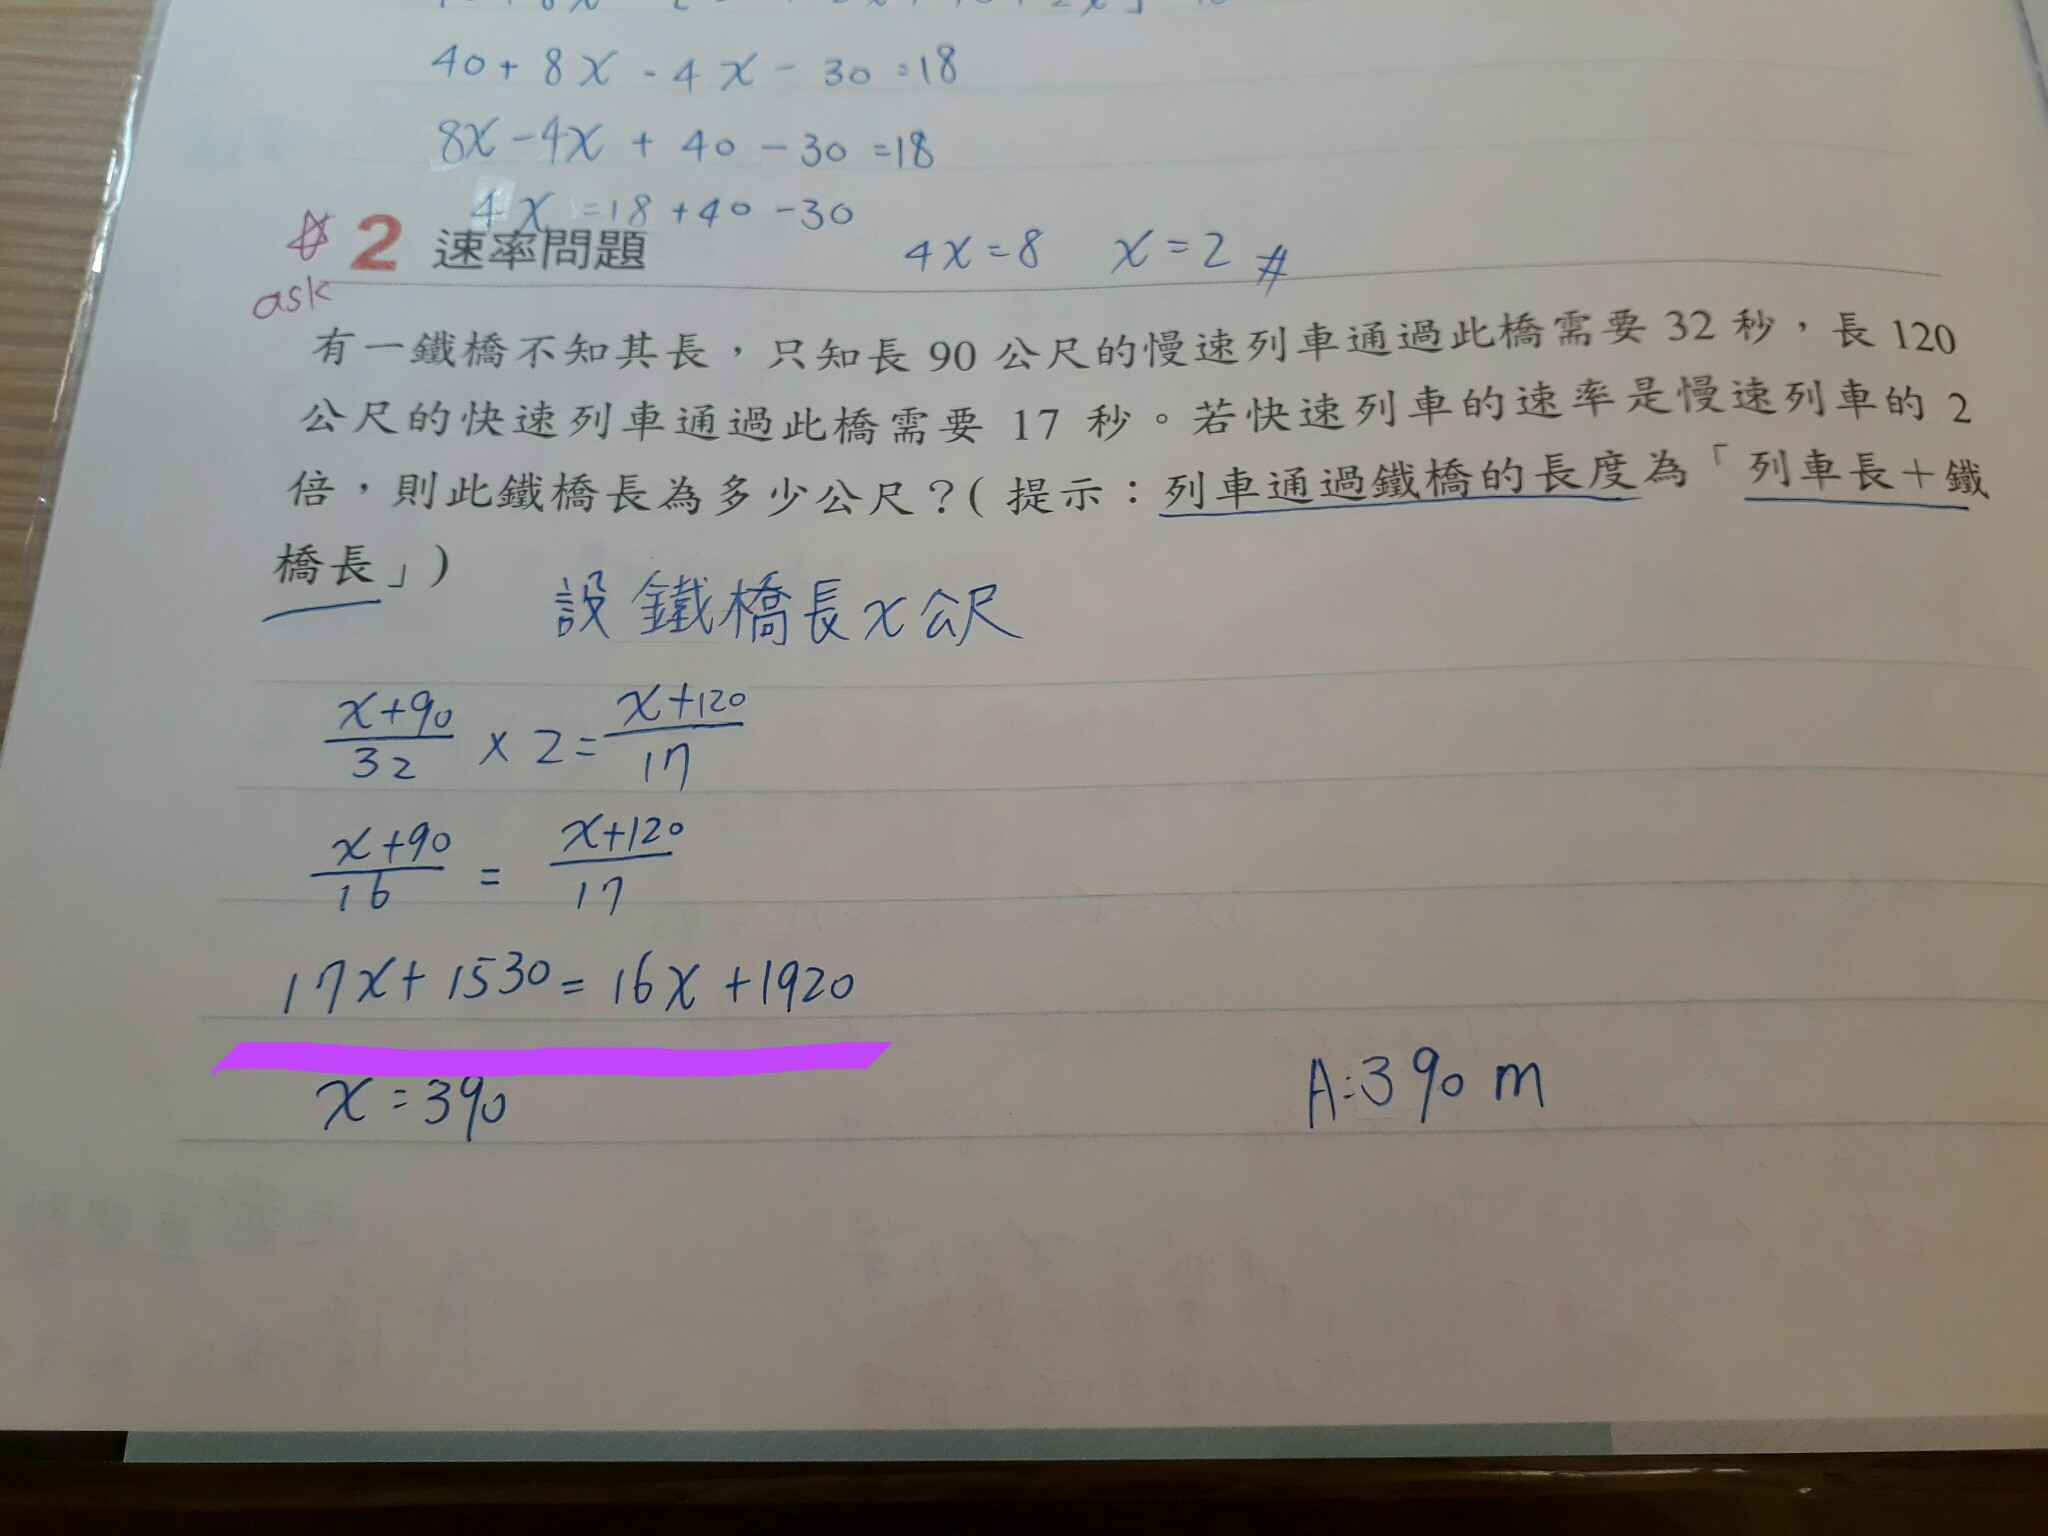 40+8x-4x-30=18
8x-4x+40-30=18
4x=18+40-30
☆2 速率問題
4x=8 x=2 #
ask
有一鐵橋不知其長，只知長 90 公尺的慢速列車通過此橋需要 32 秒，長 120
公尺的快速列車通過此橋需要 17 秒。若快速列車的速率是慢速列車的 2
倍，則此鐵橋長為多少公尺？(提示：列車通過鐵橋的長度為「列車長＋鐵
橋長」)
設鐵橋長x公尺
(x+90)/32 × 2 = (x+120)/17
(x+90)/16 = (x+120)/17
17x+1530=16x+1920
x=390
A:390 m